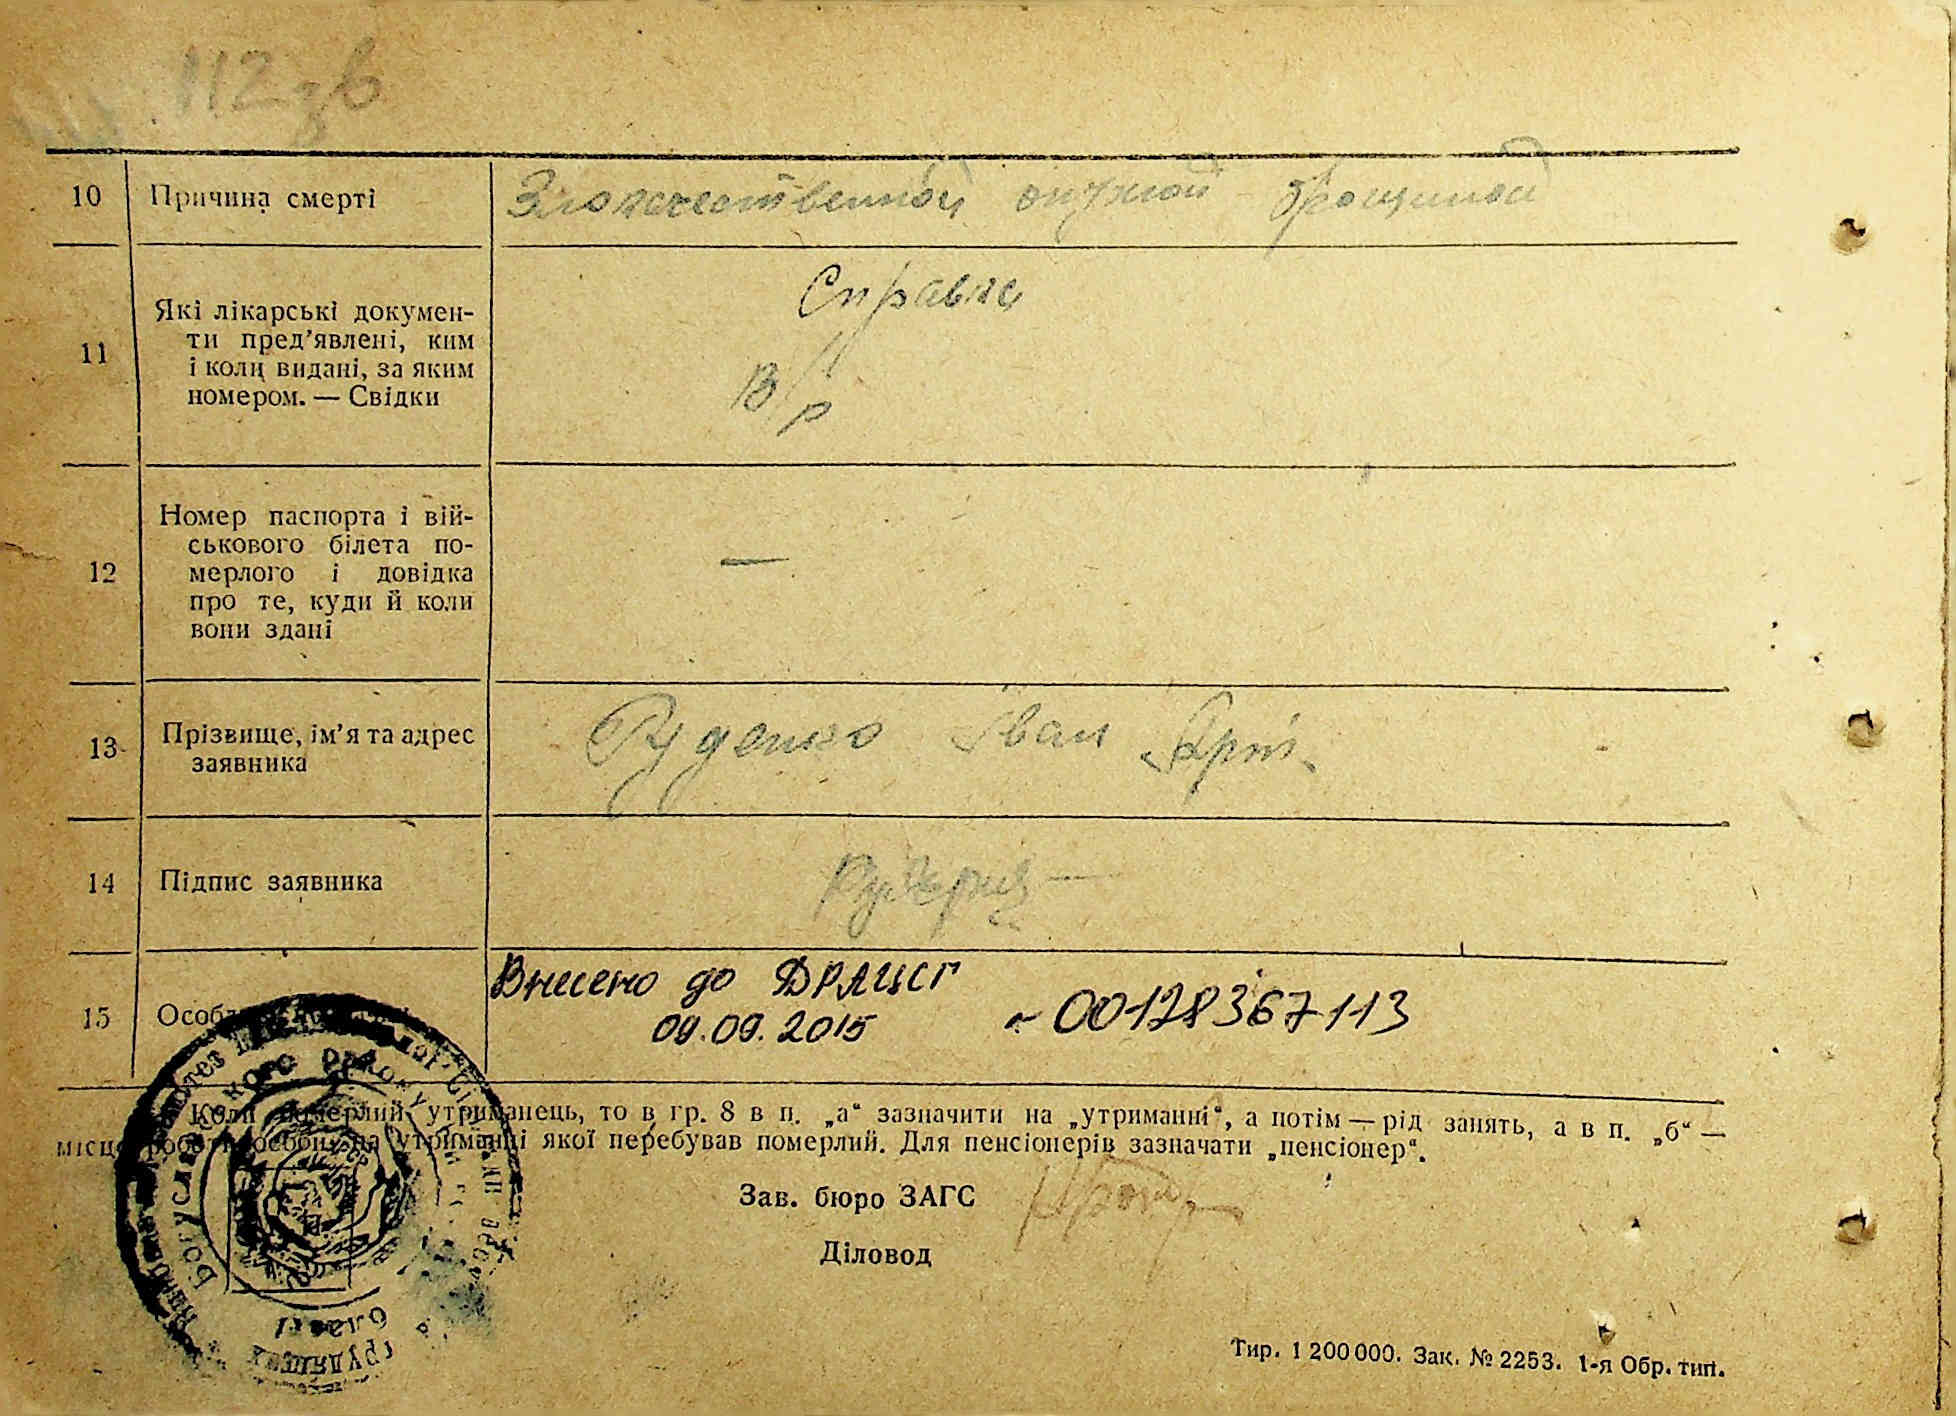 112 зв
10 Причина смерті
Злокачественной
11 Які лікарські докумен-
ти пред’явлені, ким
і коли видані, за яким
номером. — Свідки
Справка
В/р
12 Номер паспорта і вій-
ськового білета по-
мерлого і довідка
про те, куди й коли
вони здані
—
13 Прізвище, ім’я та адрес
заявника
Руденко Іван
14 Підпис заявника
15
Внесено до ДРАЦСГ
09.09.2015 00128367113
Коли померлий утриманець, то в гр. 8 в п. „а“ зазначити на „утриманні“, а потім — рід занять, а в п. „б“ —
місце роботи особи, на утриманні якої перебував померлий. Для пенсіонерів зазначати „пенсіонер“.
Зав. бюро ЗАГС
Діловод
Тир. 1 200 000. Зак. № 2253. 1-я Обр. тип.